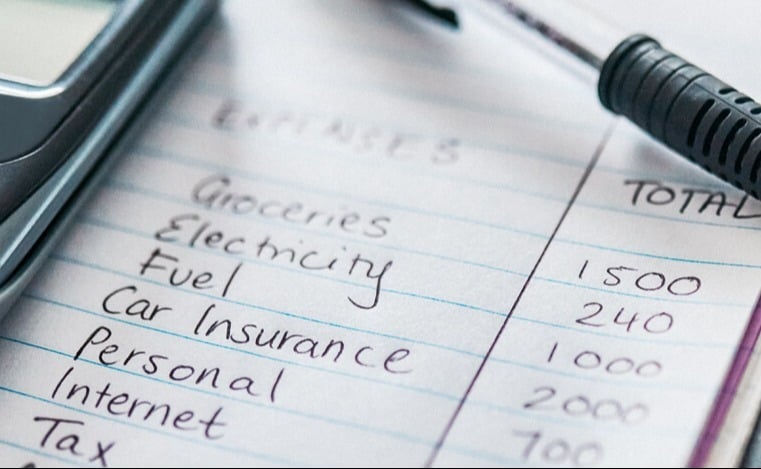 EXPENSES TOTAL
Groceries 1500
Electricity 240
Fuel 1000
Car Insurance 2000
Personal 700
Internet
Tax